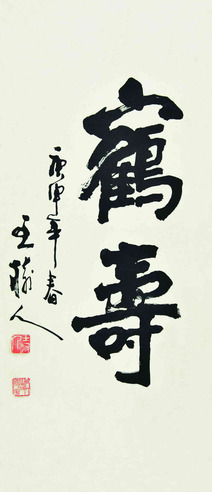 鶴壽
庚申年春
王人